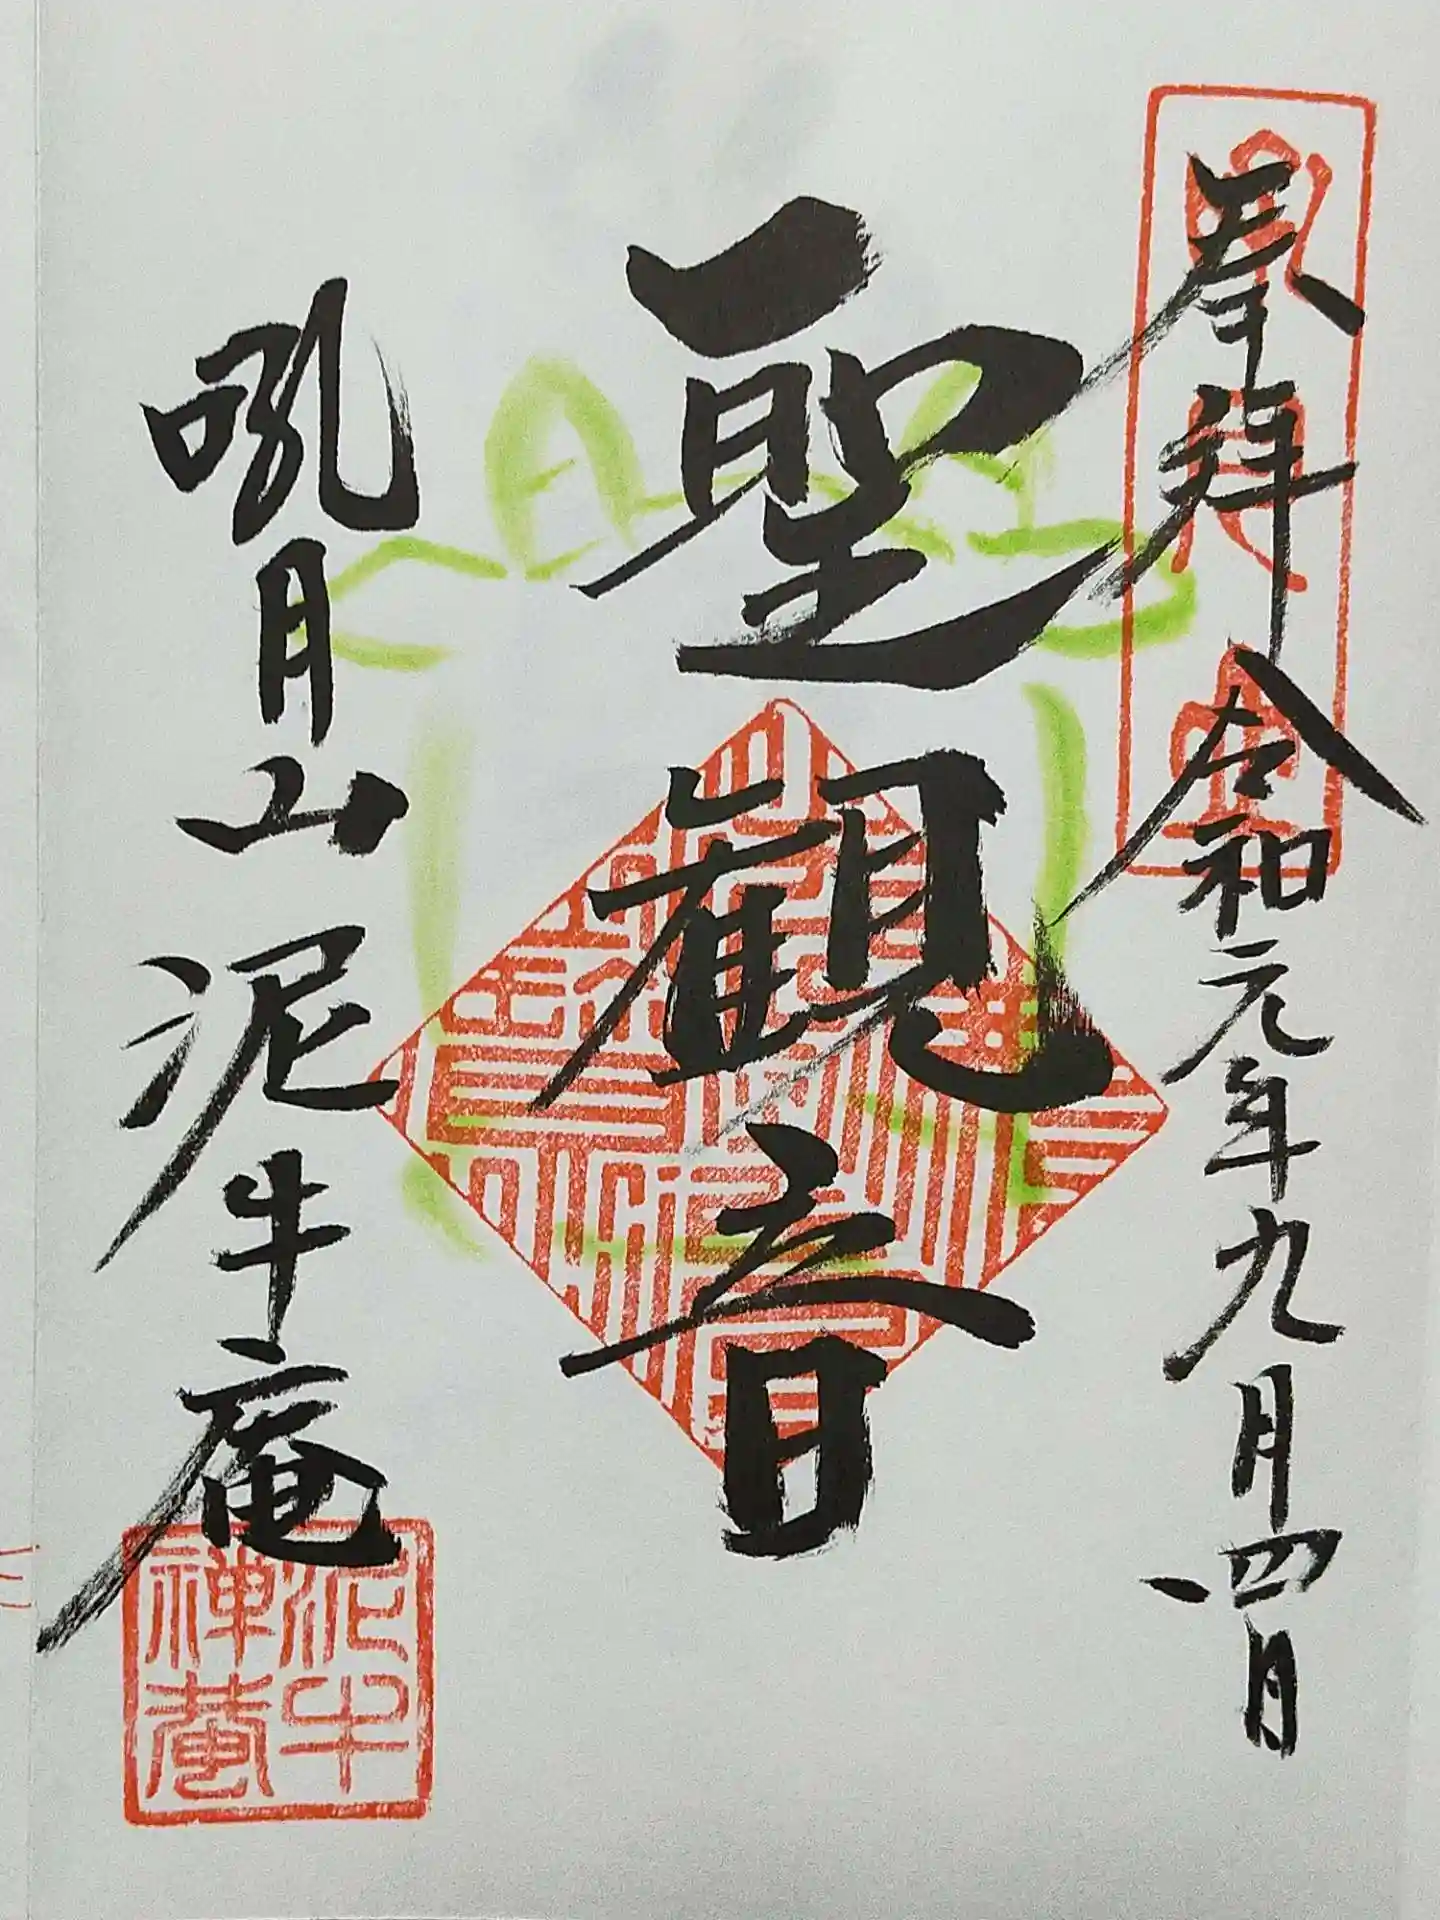 奉拝 令和元年九月四日
聖観音
吼月山泥牛庵
吼月山
泥牛
禅菴